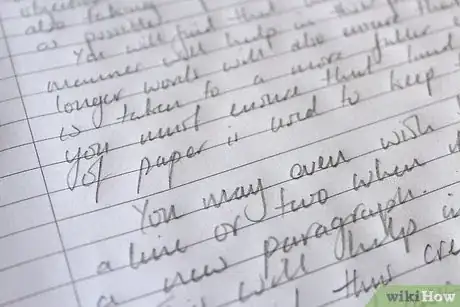 also taking
as possible
You will find that
manner will help in this
longer words will also ensure there
is taken to a more fuller
you must ensure that lined
of paper is used to keep
You may even wish
a line or two when
a new paragraph.
will help
this
wikiHow